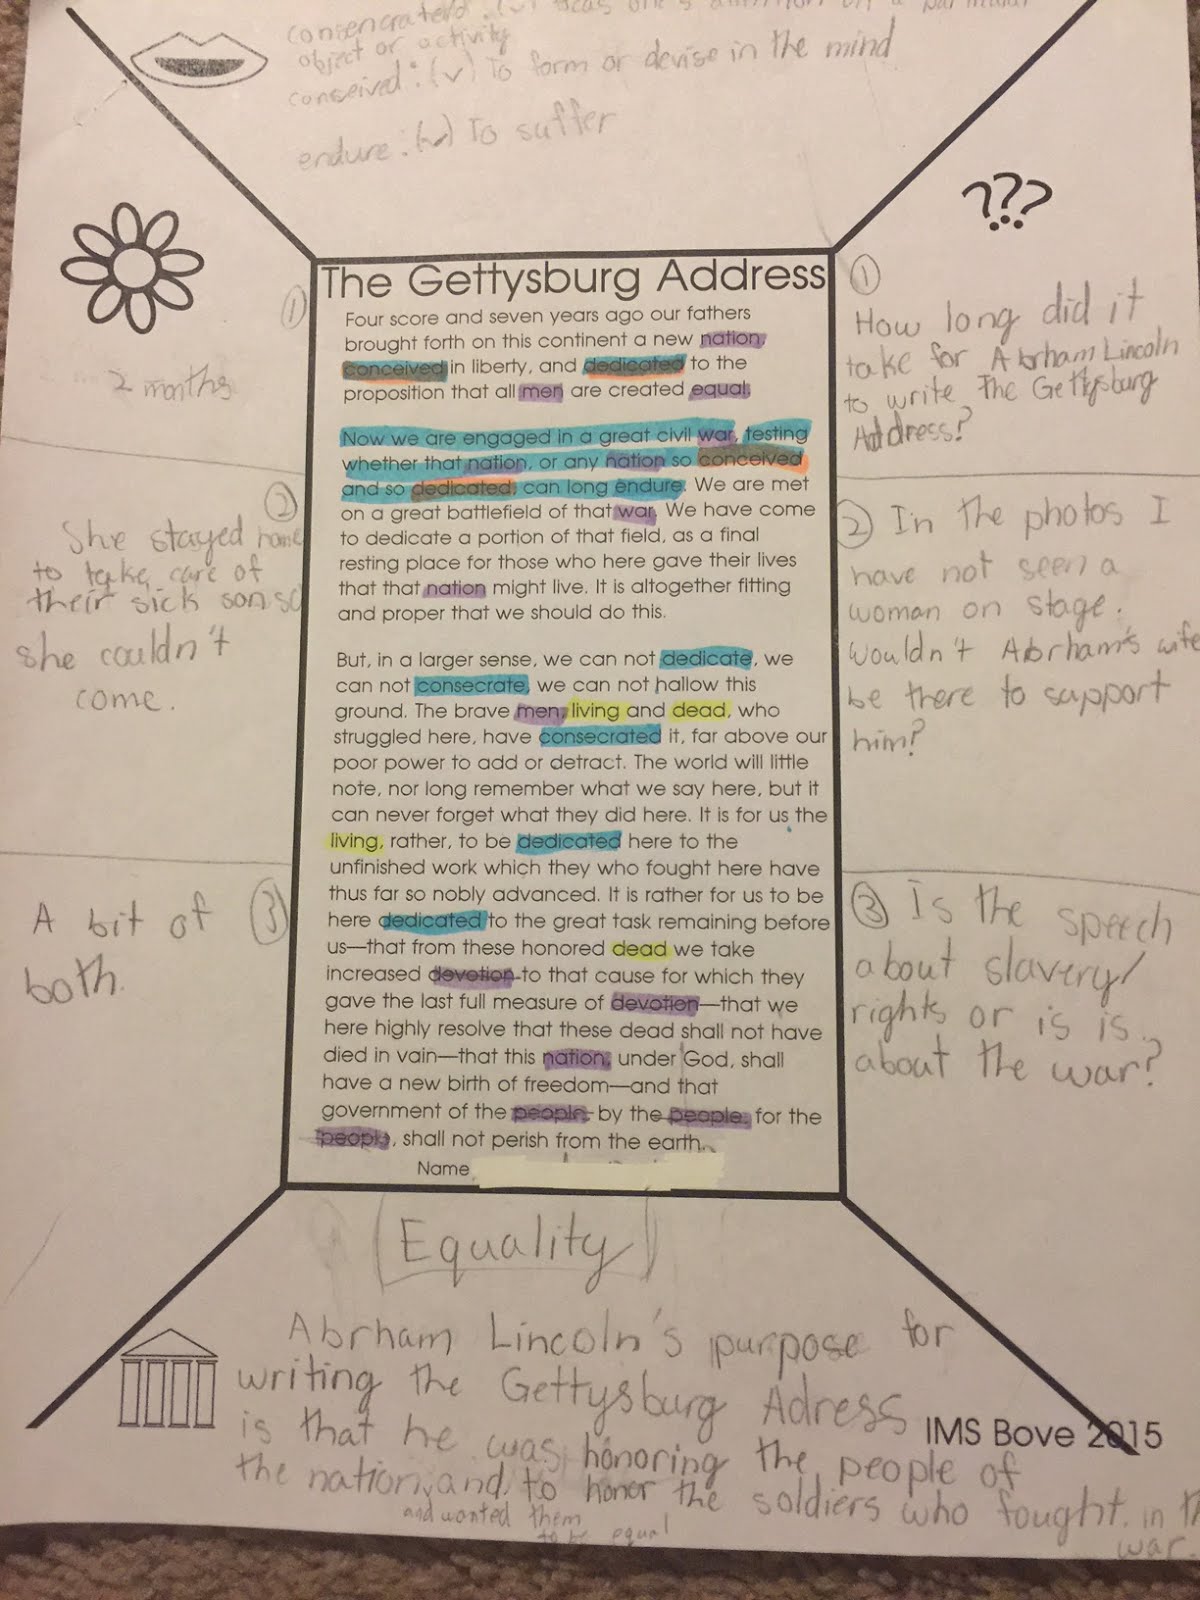 consencrated: (v) focus one's attention on a particular
object or activity
conseived: (v) To form or devise in the mind
endure: (v) To suffer
???
The Gettysburg Address
Four score and seven years ago our fathers
brought forth on this continent a new nation,
conceived in liberty, and dedicated to the
proposition that all men are created equal.
Now we are engaged in a great civil war, testing
whether that nation, or any nation so conceived
and so dedicated, can long endure. We are met
on a great battlefield of that war. We have come
to dedicate a portion of that field, as a final
resting place for those who here gave their lives
that that nation might live. It is altogether fitting
and proper that we should do this.
But, in a larger sense, we can not dedicate, we
can not consecrate, we can not hallow this
ground. The brave men, living and dead, who
struggled here, have consecrated it, far above our
poor power to add or detract. The world will little
note, nor long remember what we say here, but it
can never forget what they did here. It is for us the
living, rather, to be dedicated here to the
unfinished work which they who fought here have
thus far so nobly advanced. It is rather for us to be
here dedicated to the great task remaining before
us—that from these honored dead we take
increased devotion to that cause for which they
gave the last full measure of devotion—that we
here highly resolve that these dead shall not have
died in vain—that this nation, under God, shall
have a new birth of freedom—and that
government of the people, by the people, for the
people, shall not perish from the earth.
Name
1
2 months
2
She stayed home
to take care of
their sick son so
she couldn't
come.
3
A bit of
both.
1
How long did it
take for Abrham Lincoln
to write The Gettysburg
Address?
2 In the photos I
have not seen a
woman on stage.
Wouldn't Abrham's wife
be there to support
him?
3 Is the speech
about slavery/
rights or is is
about the war?
Equality
Abrham Lincoln's purpose for
writing the Gettysburg Adress
is that he was honoring the people of
the nation, and to honor the soldiers who fought in th
war.
and wanted them
to be equal
IMS Bove 2015